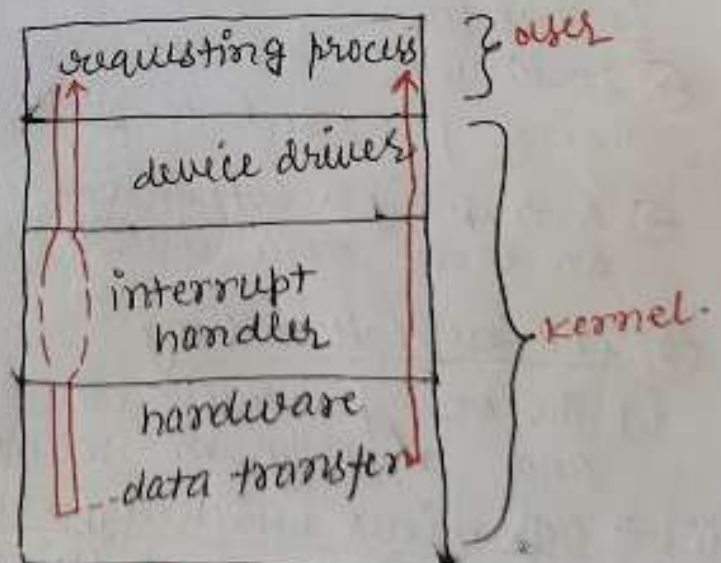 requesting process
user
device driver
interrupt
handler
kernel.
hardware
data transfer